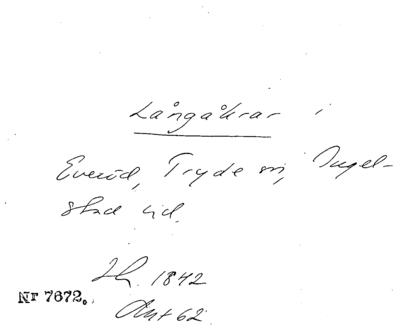 Långåkrar i
Everöd, Tryde sn, Ingel-
stad hd.
1842
Nr 7672.
Ant 62